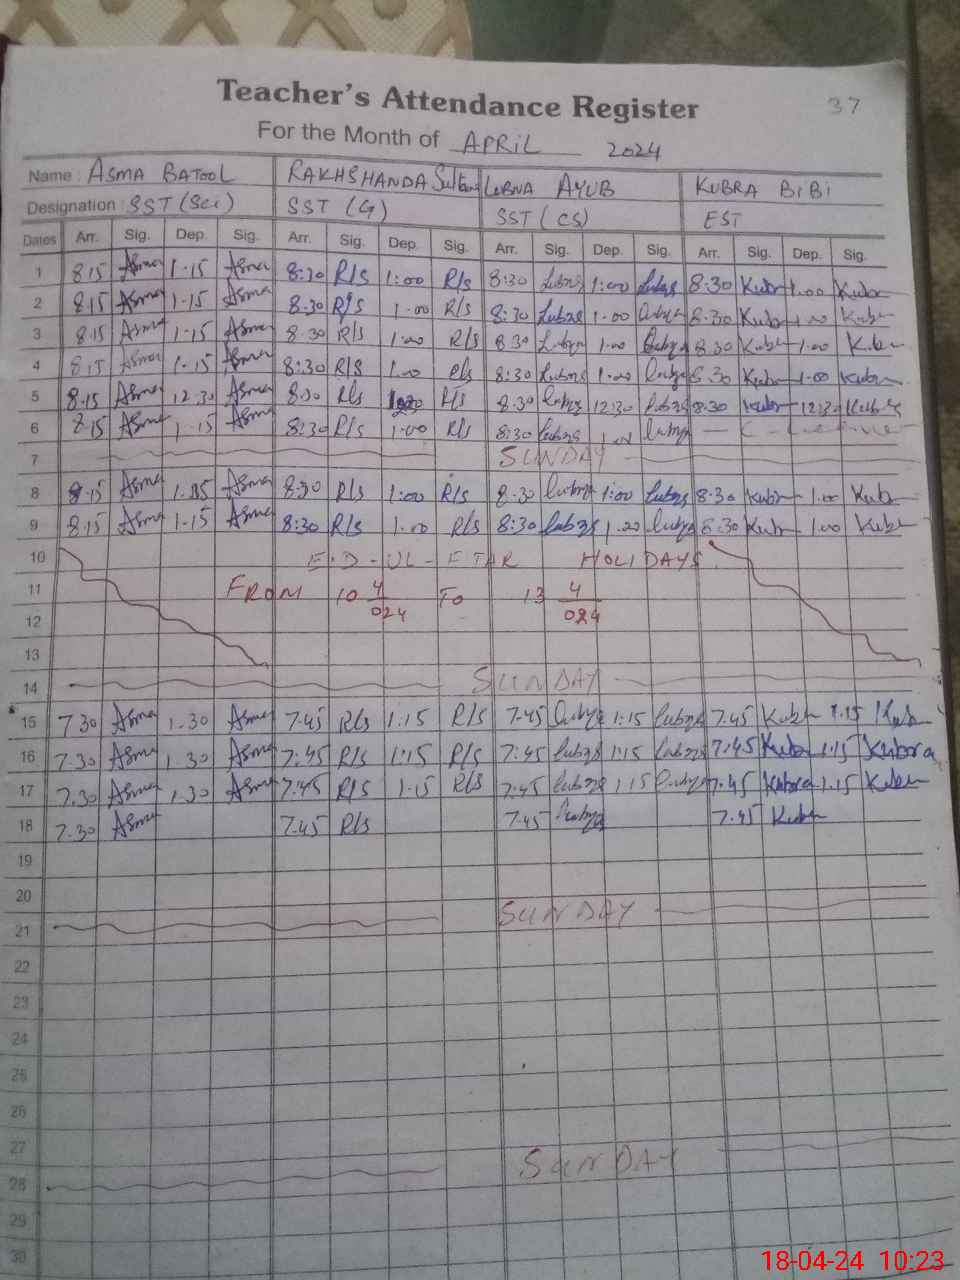 Teacher's Attendance Register
37
For the Month of APRIL 2024
Name : ASMA BATOOL RAKHSHANDA Sultana LUBNA AYUB KUBRA BIBI
Designation : SST (Sci) SST (G) SST (CS) EST
Dates Arr. Sig. Dep. Sig. Arr. Sig. Dep. Sig. Arr. Sig. Dep. Sig. Arr. Sig. Dep. Sig.
1 8.15 Asma 1.15 Asma 8:30 R/s 1:00 R/s 8:30 1:00 8.30 Kubr 1.00 Kubr
2 8.15 Asma 1.15 Asma 8.30 R/s 1.00 R/s 8:30 1.00 8.30 Kubr 1.00 Kubr
3 8.15 Asma 1.15 Asma 8.30 R/s 1.00 R/s 8 30 1.00 8.30 Kubr 1.00 Kubr
4 8.15 Asma 1.15 Asma 8:30 R/s 1.00 R/s 8:30 1.00 8.30 Kubr 1.00 Kubr
5 8.15 Asma 12.30 Asma 8:30 R/s R/s 8.30 12:30 8:30 Kubr 12:30
6 8.15 Asma 1.15 Asma 8:30 R/s 1.00 R/s 8:30 1.00
7 SUNDAY
8 8.15 Asma 1.15 Asma 8:30 R/s 1:00 R/s 8.30 1:00 8.30 Kubr 1.00 Kubr
9 8.15 Asma 1.15 Asma 8:30 R/s 1.00 R/s 8:30 8.30 Kubr 1.00 Kubr
10 EID-UL-FTAR HOLIDAYS
11 FROM 10 4/024 TO 13 4/024
12
13
14 SUNDAY
15 7 30 Asma 1.30 Asma 7.45 R/s 1:15 R/s 7.45 1:15 7.45 Kubr 1.15 Kubr
16 7.30 Asma 1.30 Asma 7:45 R/s 1:15 R/s 7:45 1:15 7:45 Kubr 1:15 Kubora
17 7.30 Asma 1.30 Asma 7:45 R/s 1.15 R/s 7:45 1.15 7.45 Kubora 1.15 Kubr
18 7.30 Asma 7.45 R/s 7.45 7.45 Kubr
19
20
21 SUNDAY
22
23
24
25
26
27
28 SUNDAY
29
30
18-04-24 10:23